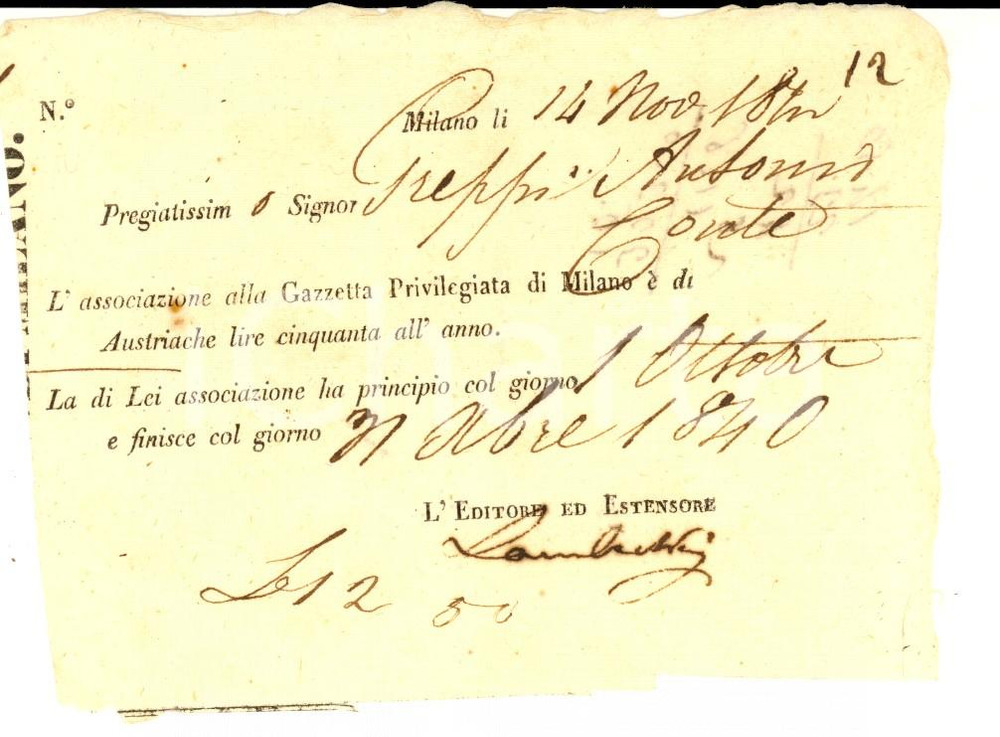 12
N.º Milano li 14 Nov. 1840
Pregiatissim o Signor Greppi Antonio
Conte
L' associazione alla Gazzetta Privilegiata di Milano è di
Austriache lire cinquanta all' anno.
La di Lei associazione ha principio col giorno 1 Ottobre
e finisce col giorno 31 Xbre 1840
L' EDITORE ED ESTENSORE
Lambertini
L 12 50
MILANO.